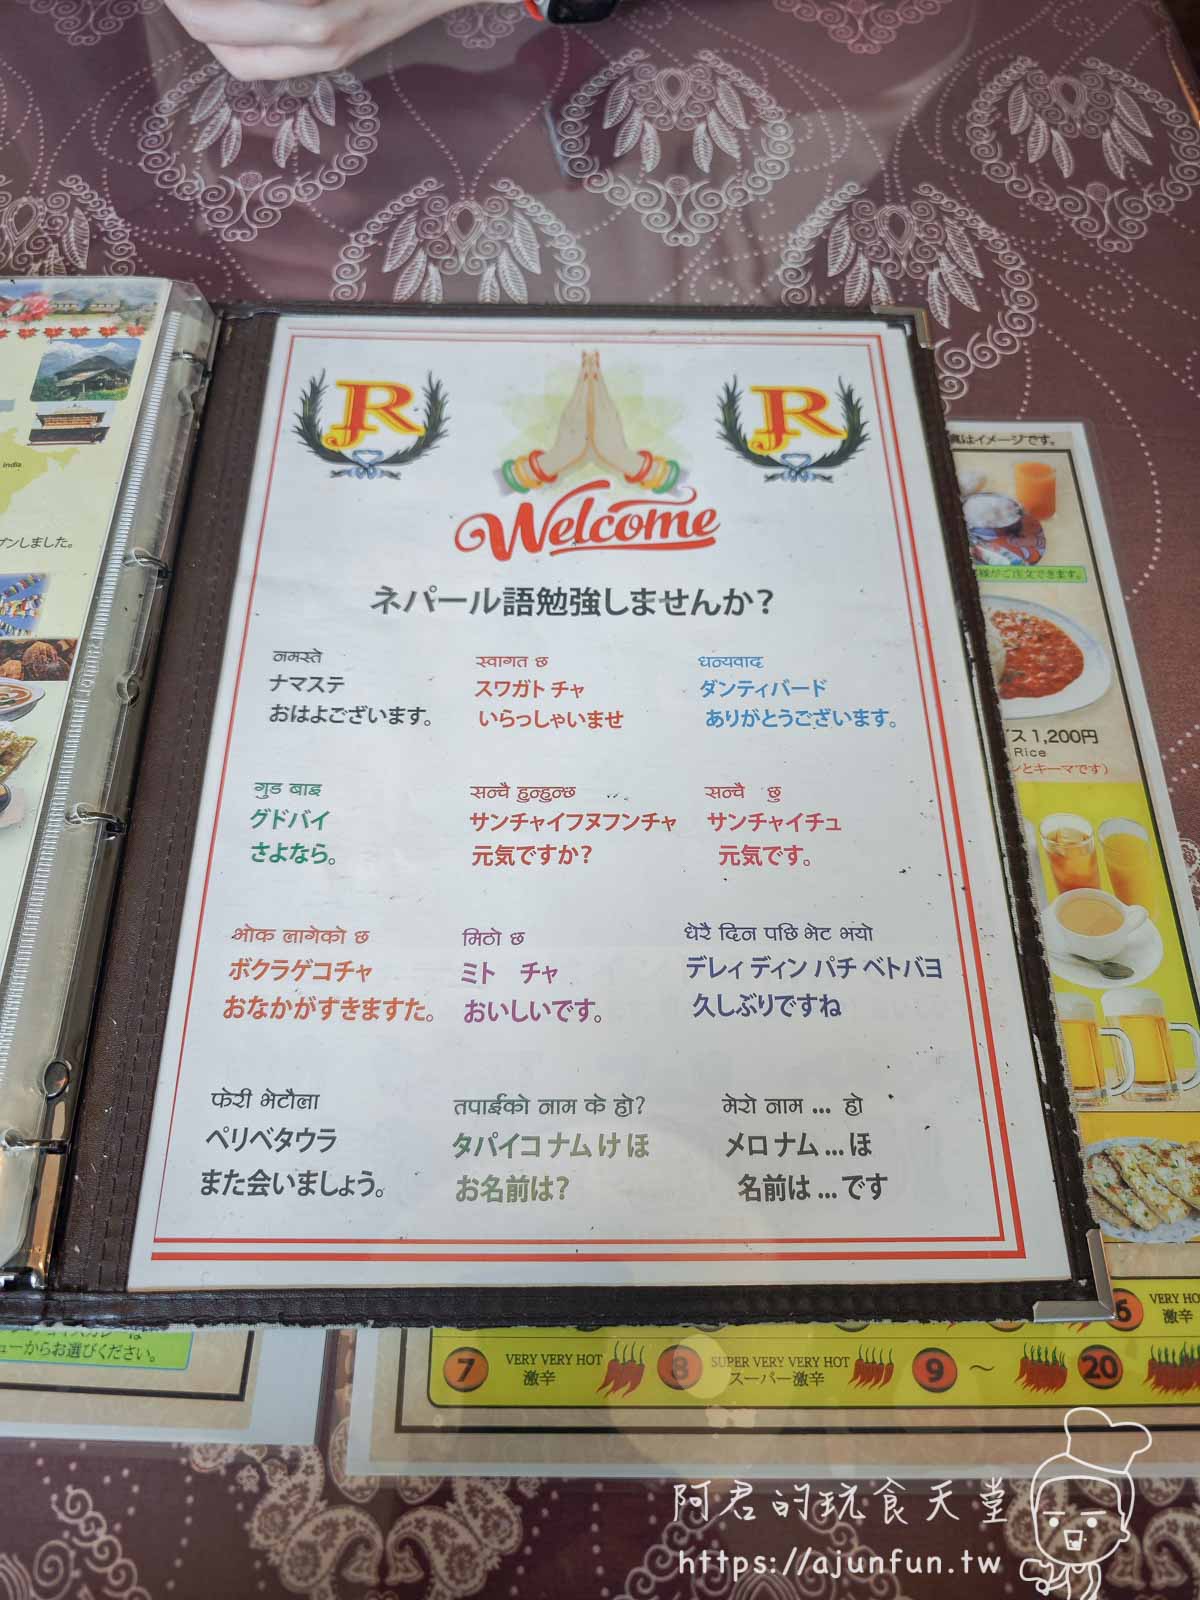 India
プンしました。
JR
JR
Welcome
ネパール語勉強しませんか？
नमस्ते
ナマステ
おはよございます。
स्वागत छ
スワガト チャ
いらっしゃいませ
धन्यवाद
ダンティバード
ありがとうございます。
गुड बाइ
グドバイ
さよなら。
सन्चै हुनुहुन्छ
サンチャイフヌフンチャ
元気ですか？
सन्चै छु
サンチャイチュ
元気です。
भोक लागेको छ
ボクラゲコチャ
おなかがすきますた。
मिठो छ
ミト チャ
おいしいです。
धेरै दिन पछि भेट भयो
デレィ ディン パチ ベトバヨ
久しぶりですね
फेरी भेटौला
ペリベタウラ
また会いましょう。
तपाईको नाम के हो?
タパイコ ナム け ほ
お名前は？
मेरो नाम ... हो
メロ ナム ... ほ
名前は ... です
はイメージです。
がご注文できます。
ス 1,200円
Rice
ンとキーマです）
ューからお選びください。
6 VERY HO
激辛
7 VERY VERY HOT
激辛
8 SUPER VERY VERY HOT
スーパー激辛
9 ～ 20
阿君的玩食天堂
https://ajunfun.tw